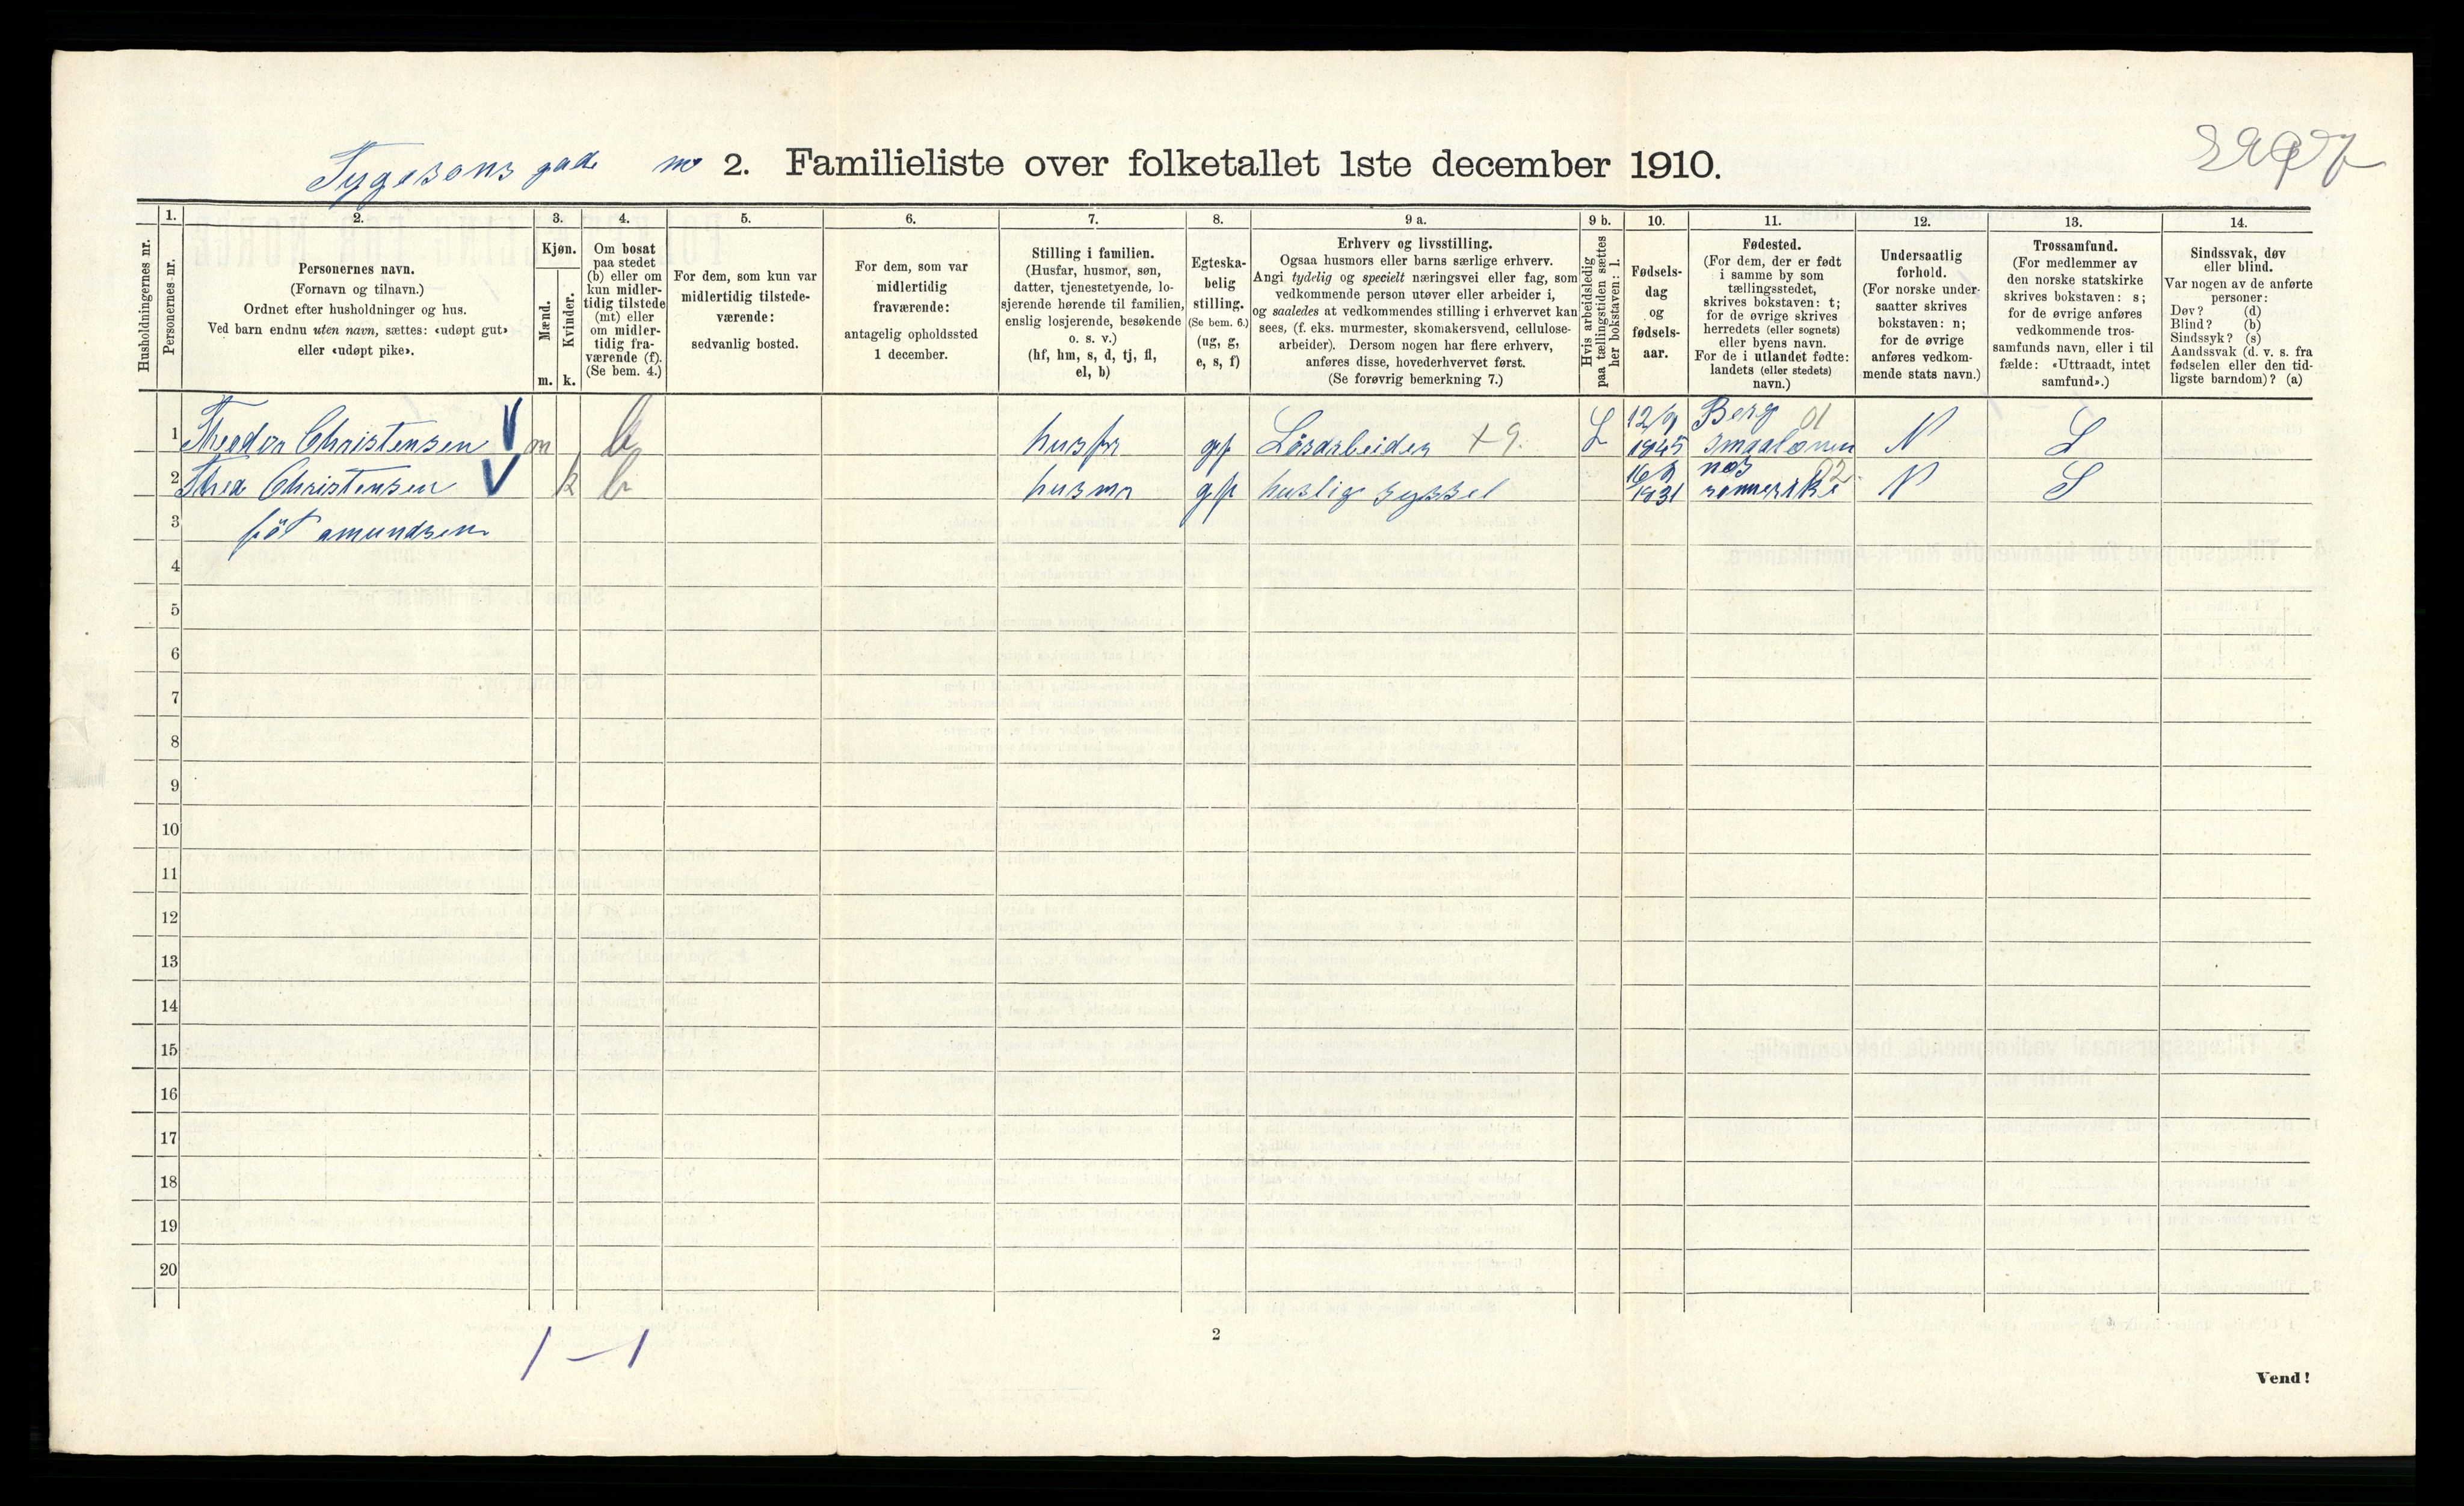 Tygesons gade no 2. Familieliste over folketallet 1ste december 1910.
Husholdningernes nr.
1.
Personernes nr.
2.
Personernes navn.
(Fornavn og tilnavn.)
Ordnet efter husholdninger og hus.
Ved barn endnu uten navn, sættes: «udøpt gut»
eller «udøpt pike».
3.
Kjøn.
Mænd.
Kvinder.
m. k.
4.
Om bosat
paa stedet
(b) eller om
kun midler-
tidig tilstede
(mt) eller
om midler-
tidig fra-
værende (f).
(Se bem. 4.)
5.
For dem, som kun var
midlertidig tilstede-
værende:
sedvanlig bosted.
6.
For dem, som var
midlertidig
fraværende:
antagelig opholdssted
1 december.
7.
Stilling i familien.
(Husfar, husmor, søn,
datter, tjenestetyende, lo-
sjerende hørende til familien,
enslig losjerende, besøkende
o. s. v.)
(hf, hm, s, d, tj, fl,
el, b)
8.
Egteska-
belig
stilling.
(Se bem. 6.)
(ug, g,
e, s, f)
9 a.
Erhverv og livsstilling.
Ogsaa husmors eller barns særlige erhverv.
Angi tydelig og specielt næringsvei eller fag, som
vedkommende person utøver eller arbeider i,
og saaledes at vedkommendes stilling i erhvervet kan
sees, (f. eks. murmester, skomakersvend, cellulose-
arbeider). Dersom nogen har flere erhverv,
anføres disse, hovederhvervet først.
(Se forøvrig bemerkning 7.)
9 b.
Hvis arbeidsledig
paa tællingstiden sættes
her bokstaven: l.
10.
Fødsels-
dag
og
fødsels-
aar.
11.
Fødested.
(For dem, der er født
i samme by som
tællingsstedet,
skrives bokstaven: t;
for de øvrige skrives
herredets (eller sognets)
eller byens navn.
For de i utlandet fødte:
landets (eller stedets)
navn.)
12.
Undersaatlig
forhold.
(For norske under-
saatter skrives
bokstaven: n;
for de øvrige
anføres vedkom-
mende stats navn.)
13.
Trossamfund.
(For medlemmer av
den norske statskirke
skrives bokstaven: s;
for de øvrige anføres
vedkommende tros-
samfunds navn, eller i til
fælde: «Uttraadt, intet
samfund».)
14.
Sindssvak, døv
eller blind.
Var nogen av de anførte
personer:
Døv? (d)
Blind? (b)
Sindssyk? (s)
Aandssvak (d. v. s. fra
fødselen eller den tid-
ligste barndom)? (a)
1 Theodor Christensen m b husfr gf Lösarbeider + 9. L 12/9 1845 Berg 01 Smaalenen N S
2 Thea Christensen k b husmr gf huslig syssel 1831 nes romerike 02 N S
3 föt amundsen
4
5
6
7
8
9
10
11
12
13
14
15
16
17
18
19
20
1 – 1
2
Vend!